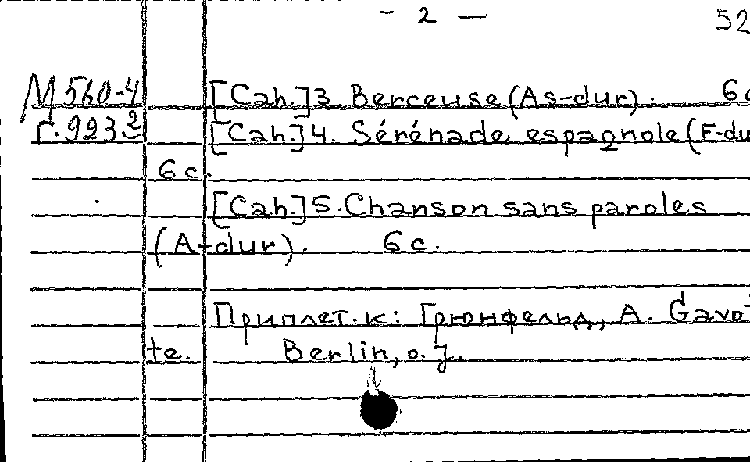 - 2 — 52
М 560-4 [Cah.]3. Berceuse (As-dur). 6c
Г. 923.2 [Cah.]4. Sérénade espagnole (F-du
6 с.
[Cah.]5. Chanson sans paroles
(A-dur). 6 с.
Приплет. к: Грюнфельд, А. Gavot
te. Berlin, o. J.